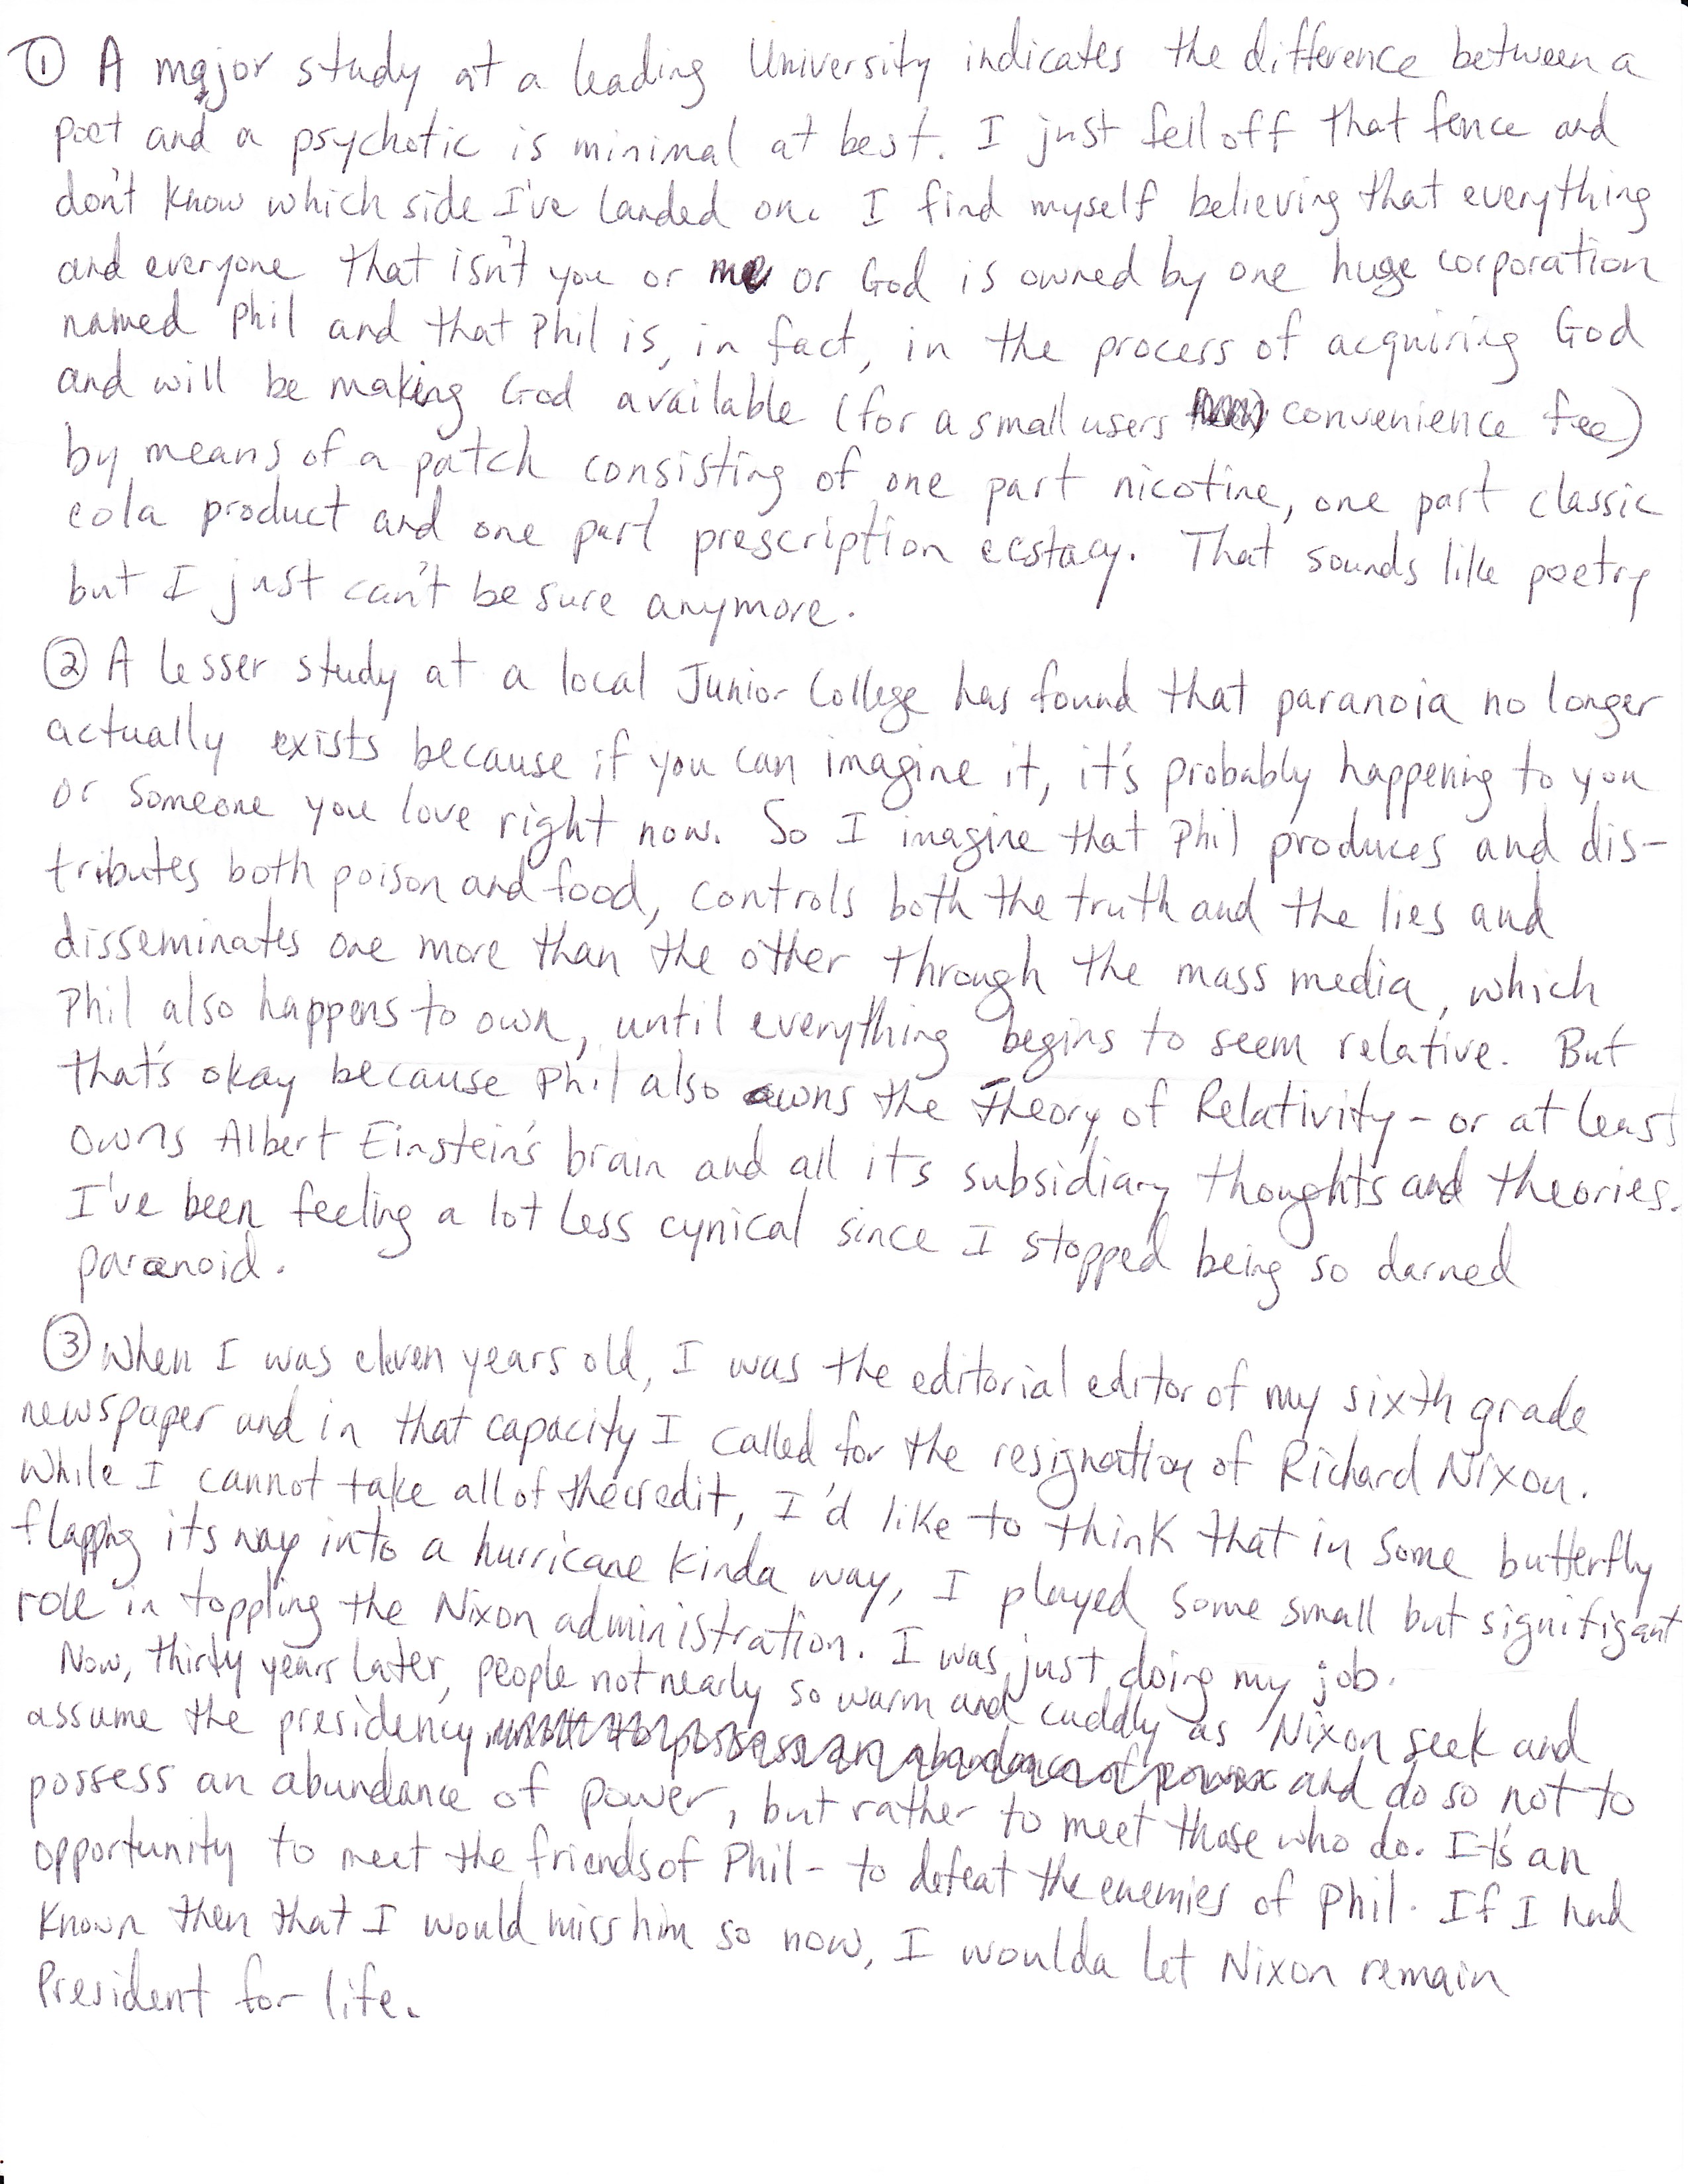 ① A major study at a leading University indicates the difference between a
poet and a psychotic is minimal at best. I just fell off that fence and
don't know which side I've landed on. I find myself believing that everything
and everyone that isn't you or me or God is owned by one huge corporation
named Phil and that Phil is, in fact, in the process of acquiring God
and will be making God available (for a small users convenience fee)
by means of a patch consisting of one part nicotine, one part classic
cola product and one part prescription ecstacy. That sounds like poetry
but I just can't be sure anymore.
② A lesser study at a local Junior College has found that paranoia no longer
actually exists because if you can imagine it, it's probably happening to you
or someone you love right now. So I imagine that Phil produces and dis-
tributes both poison and food, controls both the truth and the lies and
disseminates one more than the other through the mass media, which
Phil also happens to own, until everything begins to seem relative. But
that's okay because Phil also owns the Theory of Relativity - or at least
owns Albert Einstein's brain and all it's subsidiary thoughts and theories.
I've been feeling a lot less cynical since I stopped being so darned
paranoid.
③ When I was eleven years old, I was the editorial editor of my sixth grade
newspaper and in that capacity I called for the resignation of Richard Nixon.
While I cannot take all of the credit, I'd like to think that in some butterfly
flapping its way into a hurricane kinda way, I played some small but signifigant
role in toppling the Nixon administration. I was just doing my job.
Now, thirty years later, people not nearly so warm and cuddly as Nixon seek and
assume the presidency to possess an abundance of power and do so not to
possess an abundance of power, but rather to meet those who do. It's an
opportunity to meet the friends of Phil - to defeat the enemies of Phil. If I had
known then that I would miss him so now, I woulda let Nixon remain
President for life.